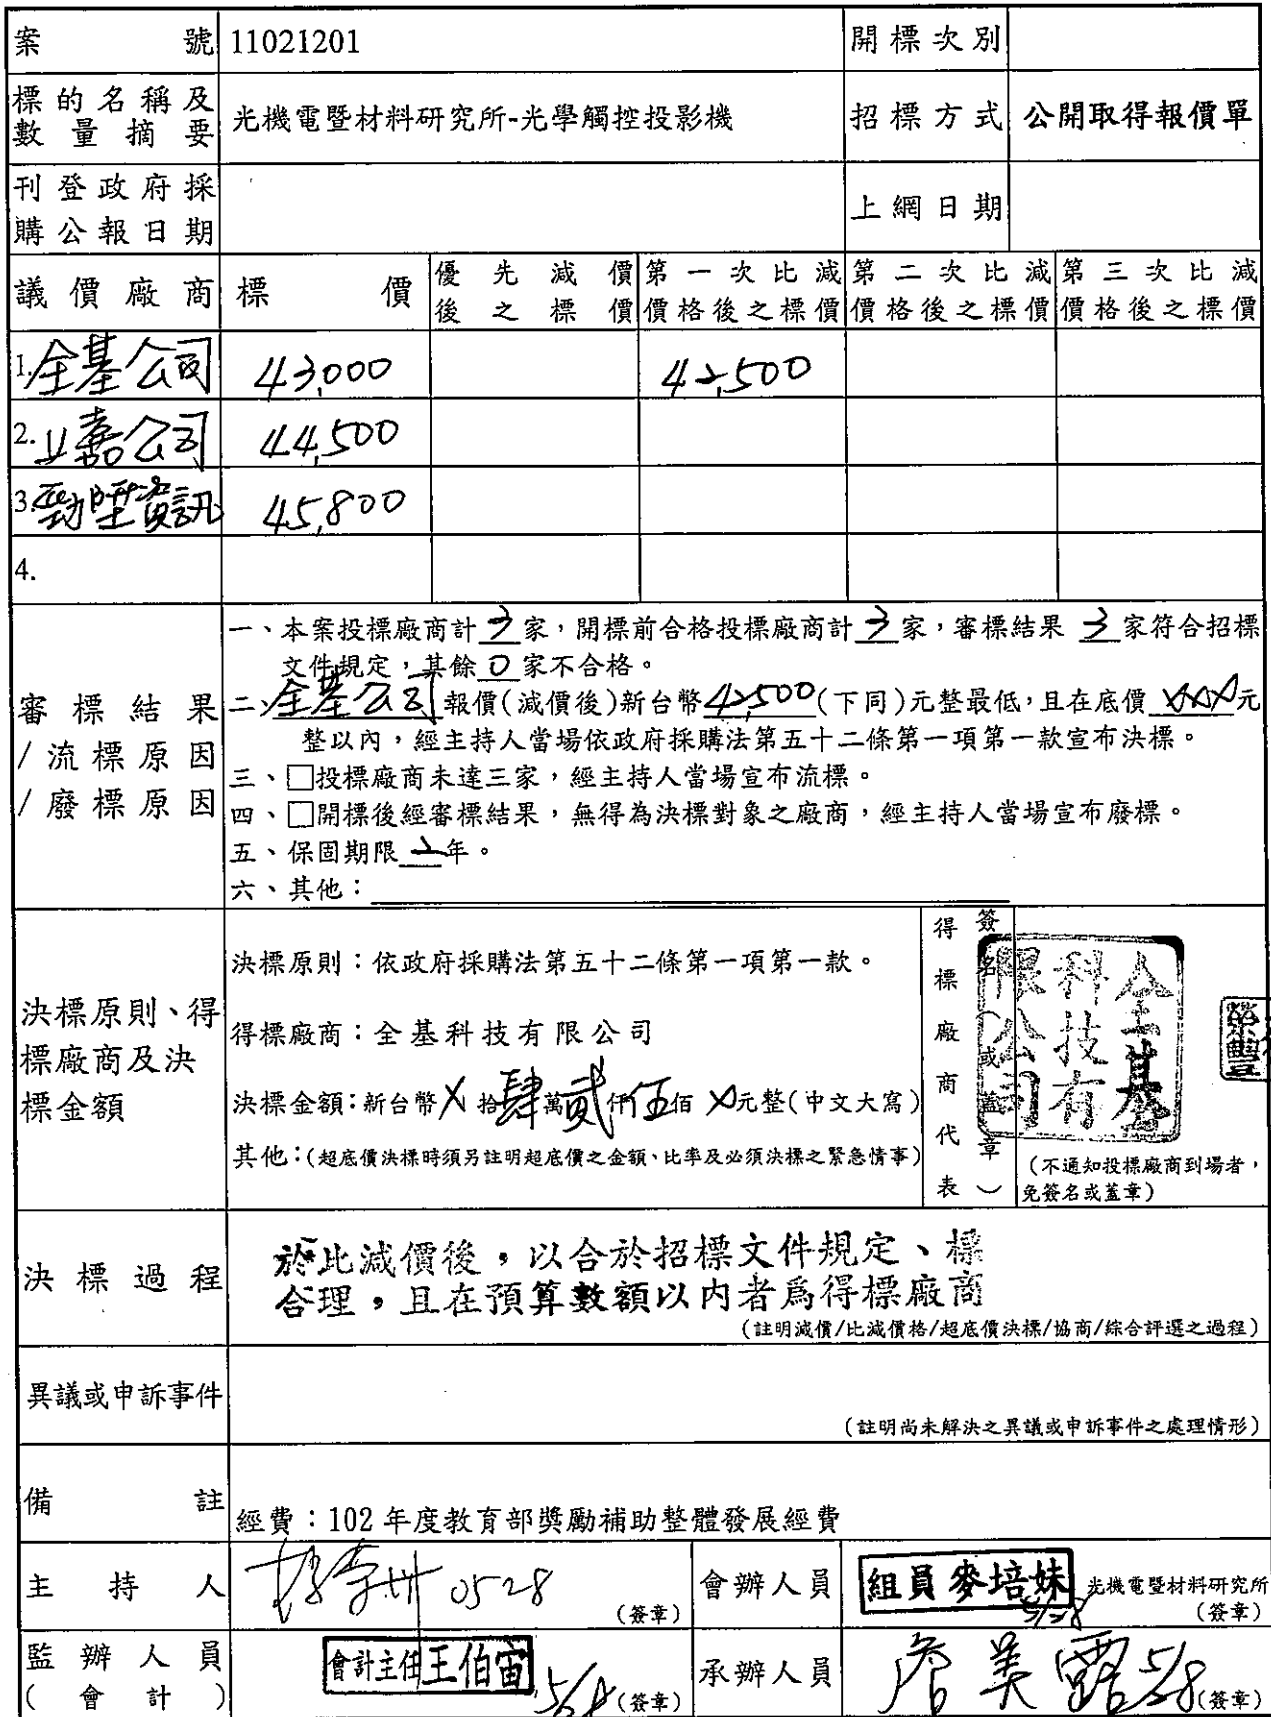 案號 11021201 開標次別
標的名稱及數量摘要 光機電暨材料研究所-光學觸控投影機 招標方式 公開取得報價單
刊登政府採購公報日期 上網日期
議價廠商 標價 優先減價後之標價 第一次比減價格後之標價 第二次比減價格後之標價 第三次比減價格後之標價
1. 全基公司 43,000 42,500
2. 立嘉公司 44,500
3. 勁陞資訊 45,800
4.
審標結果/流標原因/廢標原因
一、本案投標廠商計 3 家，開標前合格投標廠商計 3 家，審標結果 3 家符合招標
文件規定，其餘 0 家不合格。
二、全基公司報價(減價後)新台幣42,500(下同)元整最低，且在底價 XXX元
整以內，經主持人當場依政府採購法第五十二條第一項第一款宣布決標。
三、□投標廠商未達三家，經主持人當場宣布流標。
四、□開標後經審標結果，無得為決標對象之廠商，經主持人當場宣布廢標。
五、保固期限 2 年。
六、其他：
決標原則、得標廠商及決標金額
決標原則：依政府採購法第五十二條第一項第一款。
得標廠商：全基科技有限公司
決標金額：新台幣X拾肆萬貳仟伍佰X元整(中文大寫)
其他：(超底價決標時須另註明超底價之金額、比率及必須決標之緊急情事)
得標廠商代表
簽名(或蓋章)
全基科技有限公司
(不通知投標廠商到場者，
免簽名或蓋章)
決標過程
於此減價後，以合於招標文件規定、標
合理，且在預算數額以內者為得標廠商
(註明減價/比減價格/超底價決標/協商/綜合評選之過程)
異議或申訴事件
(註明尚未解決之異議或申訴事件之處理情形)
備註
經費：102 年度教育部獎勵補助整體發展經費
主持人 0528 (簽章) 會辦人員 組員麥培妹 5/28 光機電暨材料研究所
(簽章)
監辦人員(會計) 會計主任王伯宙 (簽章) 承辦人員 詹美露 5/28 (簽章)